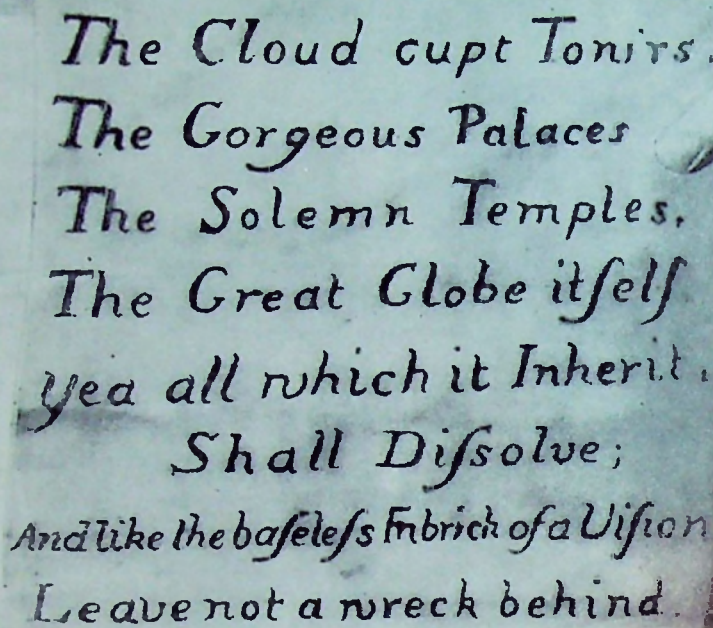 The Cloud cupt Tonirs.
The Gorgeous Palaces
The Solemn Temples.
The Great Globe itſelf
yea all which it Inherit.
Shall Diſsolve;
And like the baſeleſs Fnbrich of a Viſion
Leave not a wreck behind.